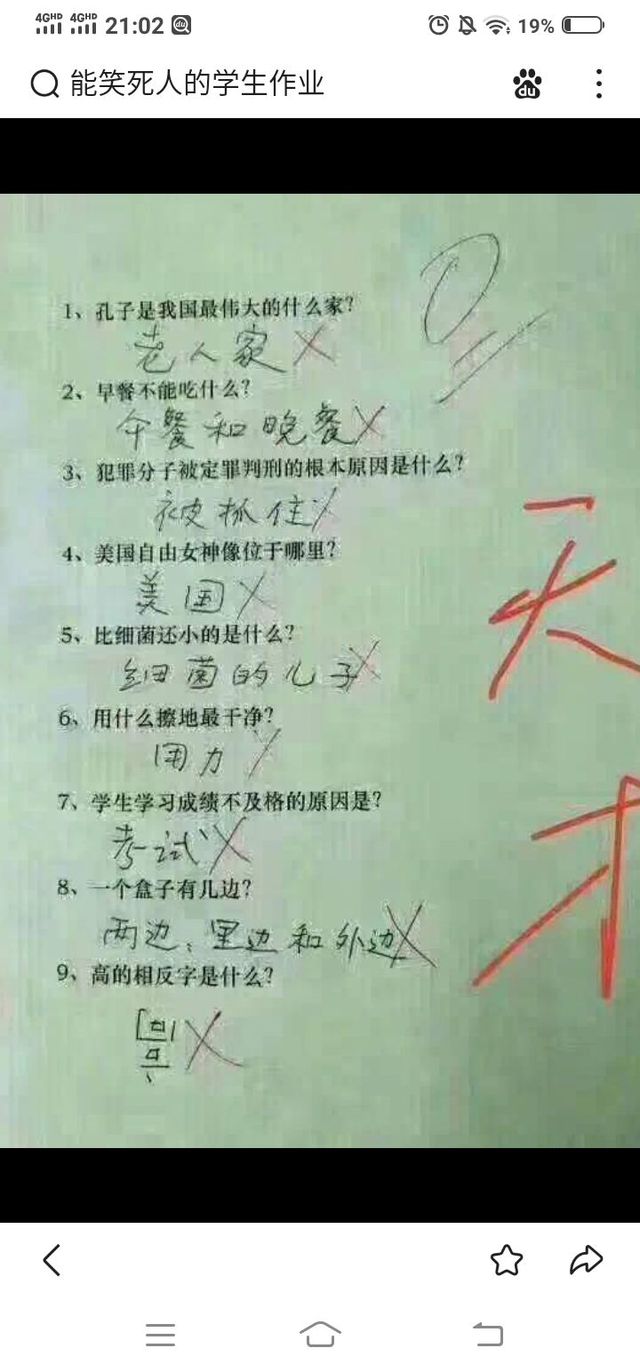 4GHD 4GHD 21:02 du 19%
能笑死人的学生作业 du
0
1、孔子是我国最伟大的什么家?
老人家 X
2、早餐不能吃什么?
午餐和晚餐 X
3、犯罪分子被定罪判刑的根本原因是什么?
被抓住 X
4、美国自由女神像位于哪里?
美国 X
5、比细菌还小的是什么?
细菌的儿子 X
6、用什么擦地最干净?
用力 X
7、学生学习成绩不及格的原因是?
考试 X
8、一个盒子有几边?
两边:里边和外边 X
9、高的相反字是什么?
X
天
才